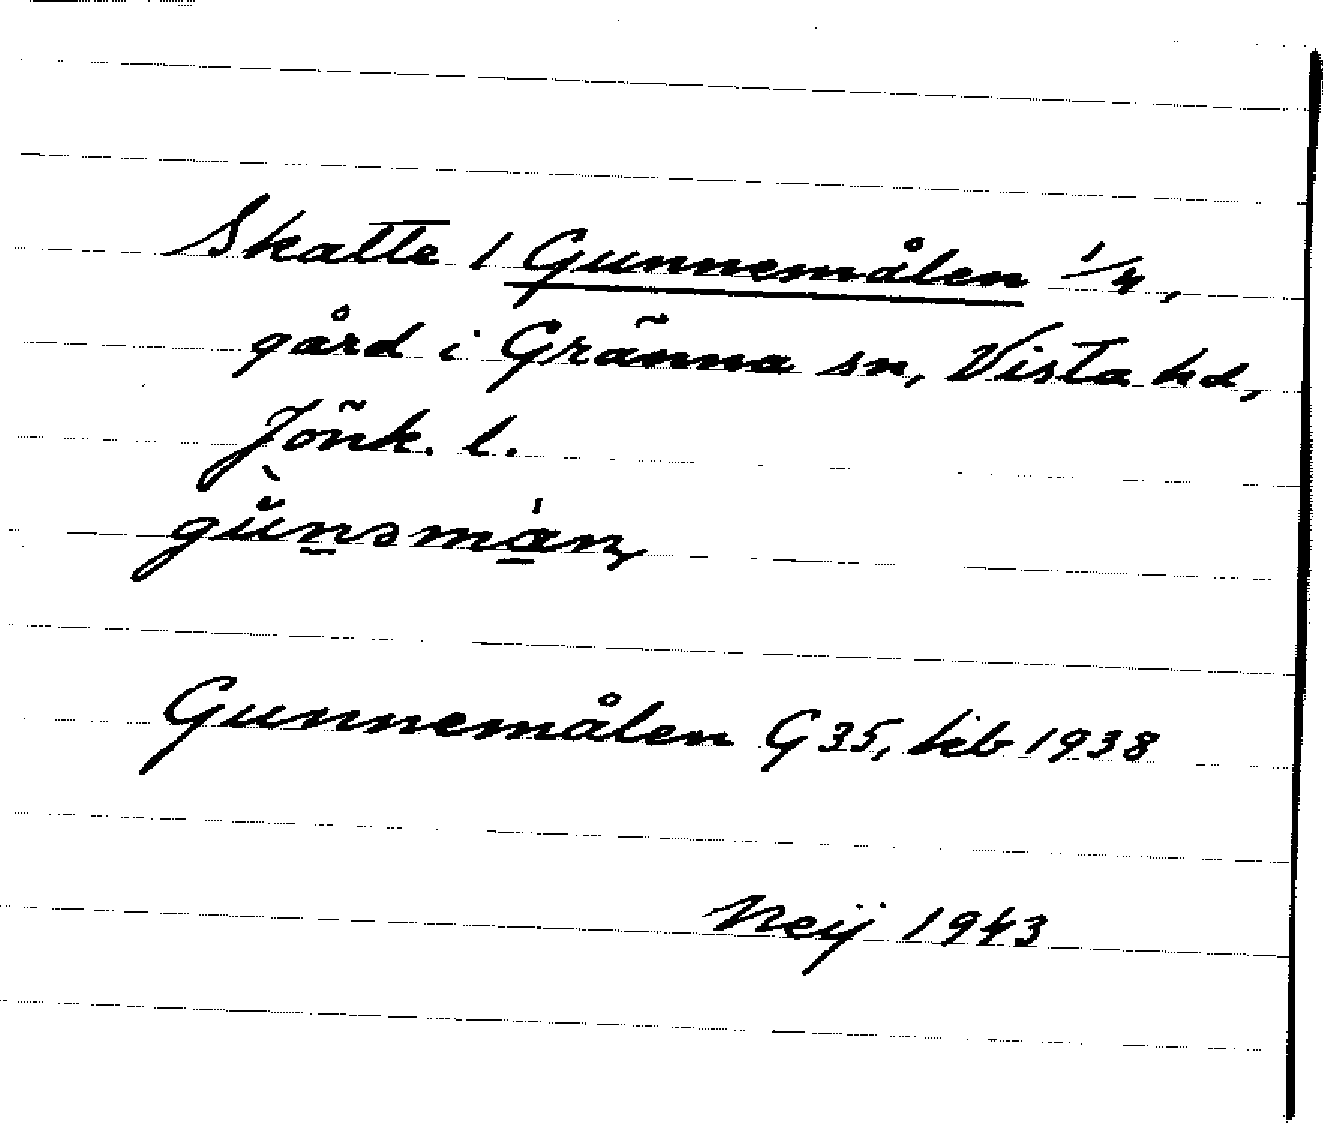 Skatte 1 Gunnemålen 1/4,
gård i Gränna sn, Vista hd,
Jönk. l.
Gunnemålen G 35, kb 1938
Neij 1943